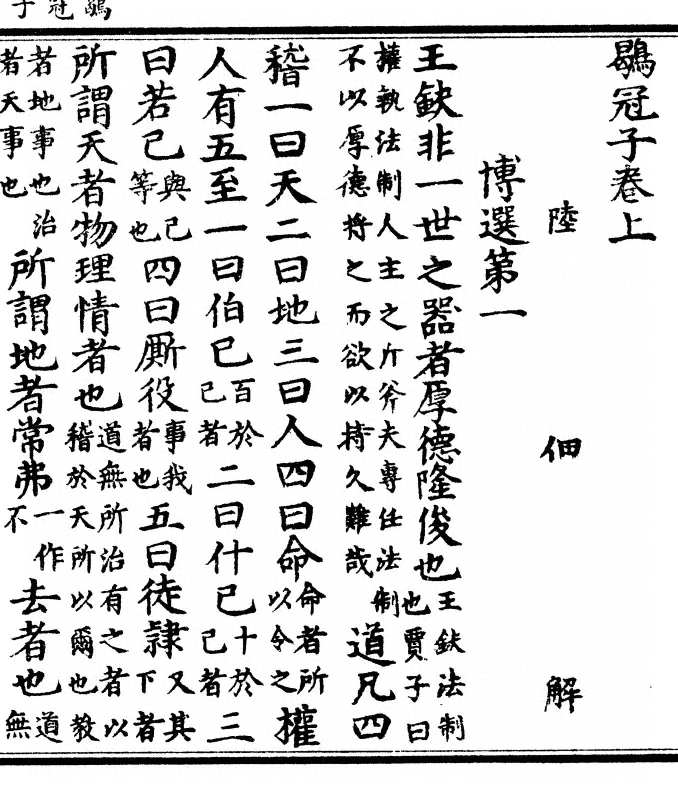 鶡冠子
鶡冠子卷上
陸佃解
博選第一
王鈇非一世之器者厚德隆俊也王鈇法制也賈子曰
權執法制人主之斤斧夫專任法制不以厚德將之而欲以持久難哉道凡四
稽一曰天二曰地三曰人四曰命命者所以令之權
人有五至一曰伯己百於己者二曰什己十於己者三
曰若己與己等也四曰厮役事我者也五曰徒隷又其下者
所謂天者物理情者也道無所治有之者以稽於天所以爾也教
者地事也治者天事也所謂地者常弗一作不去者也道無